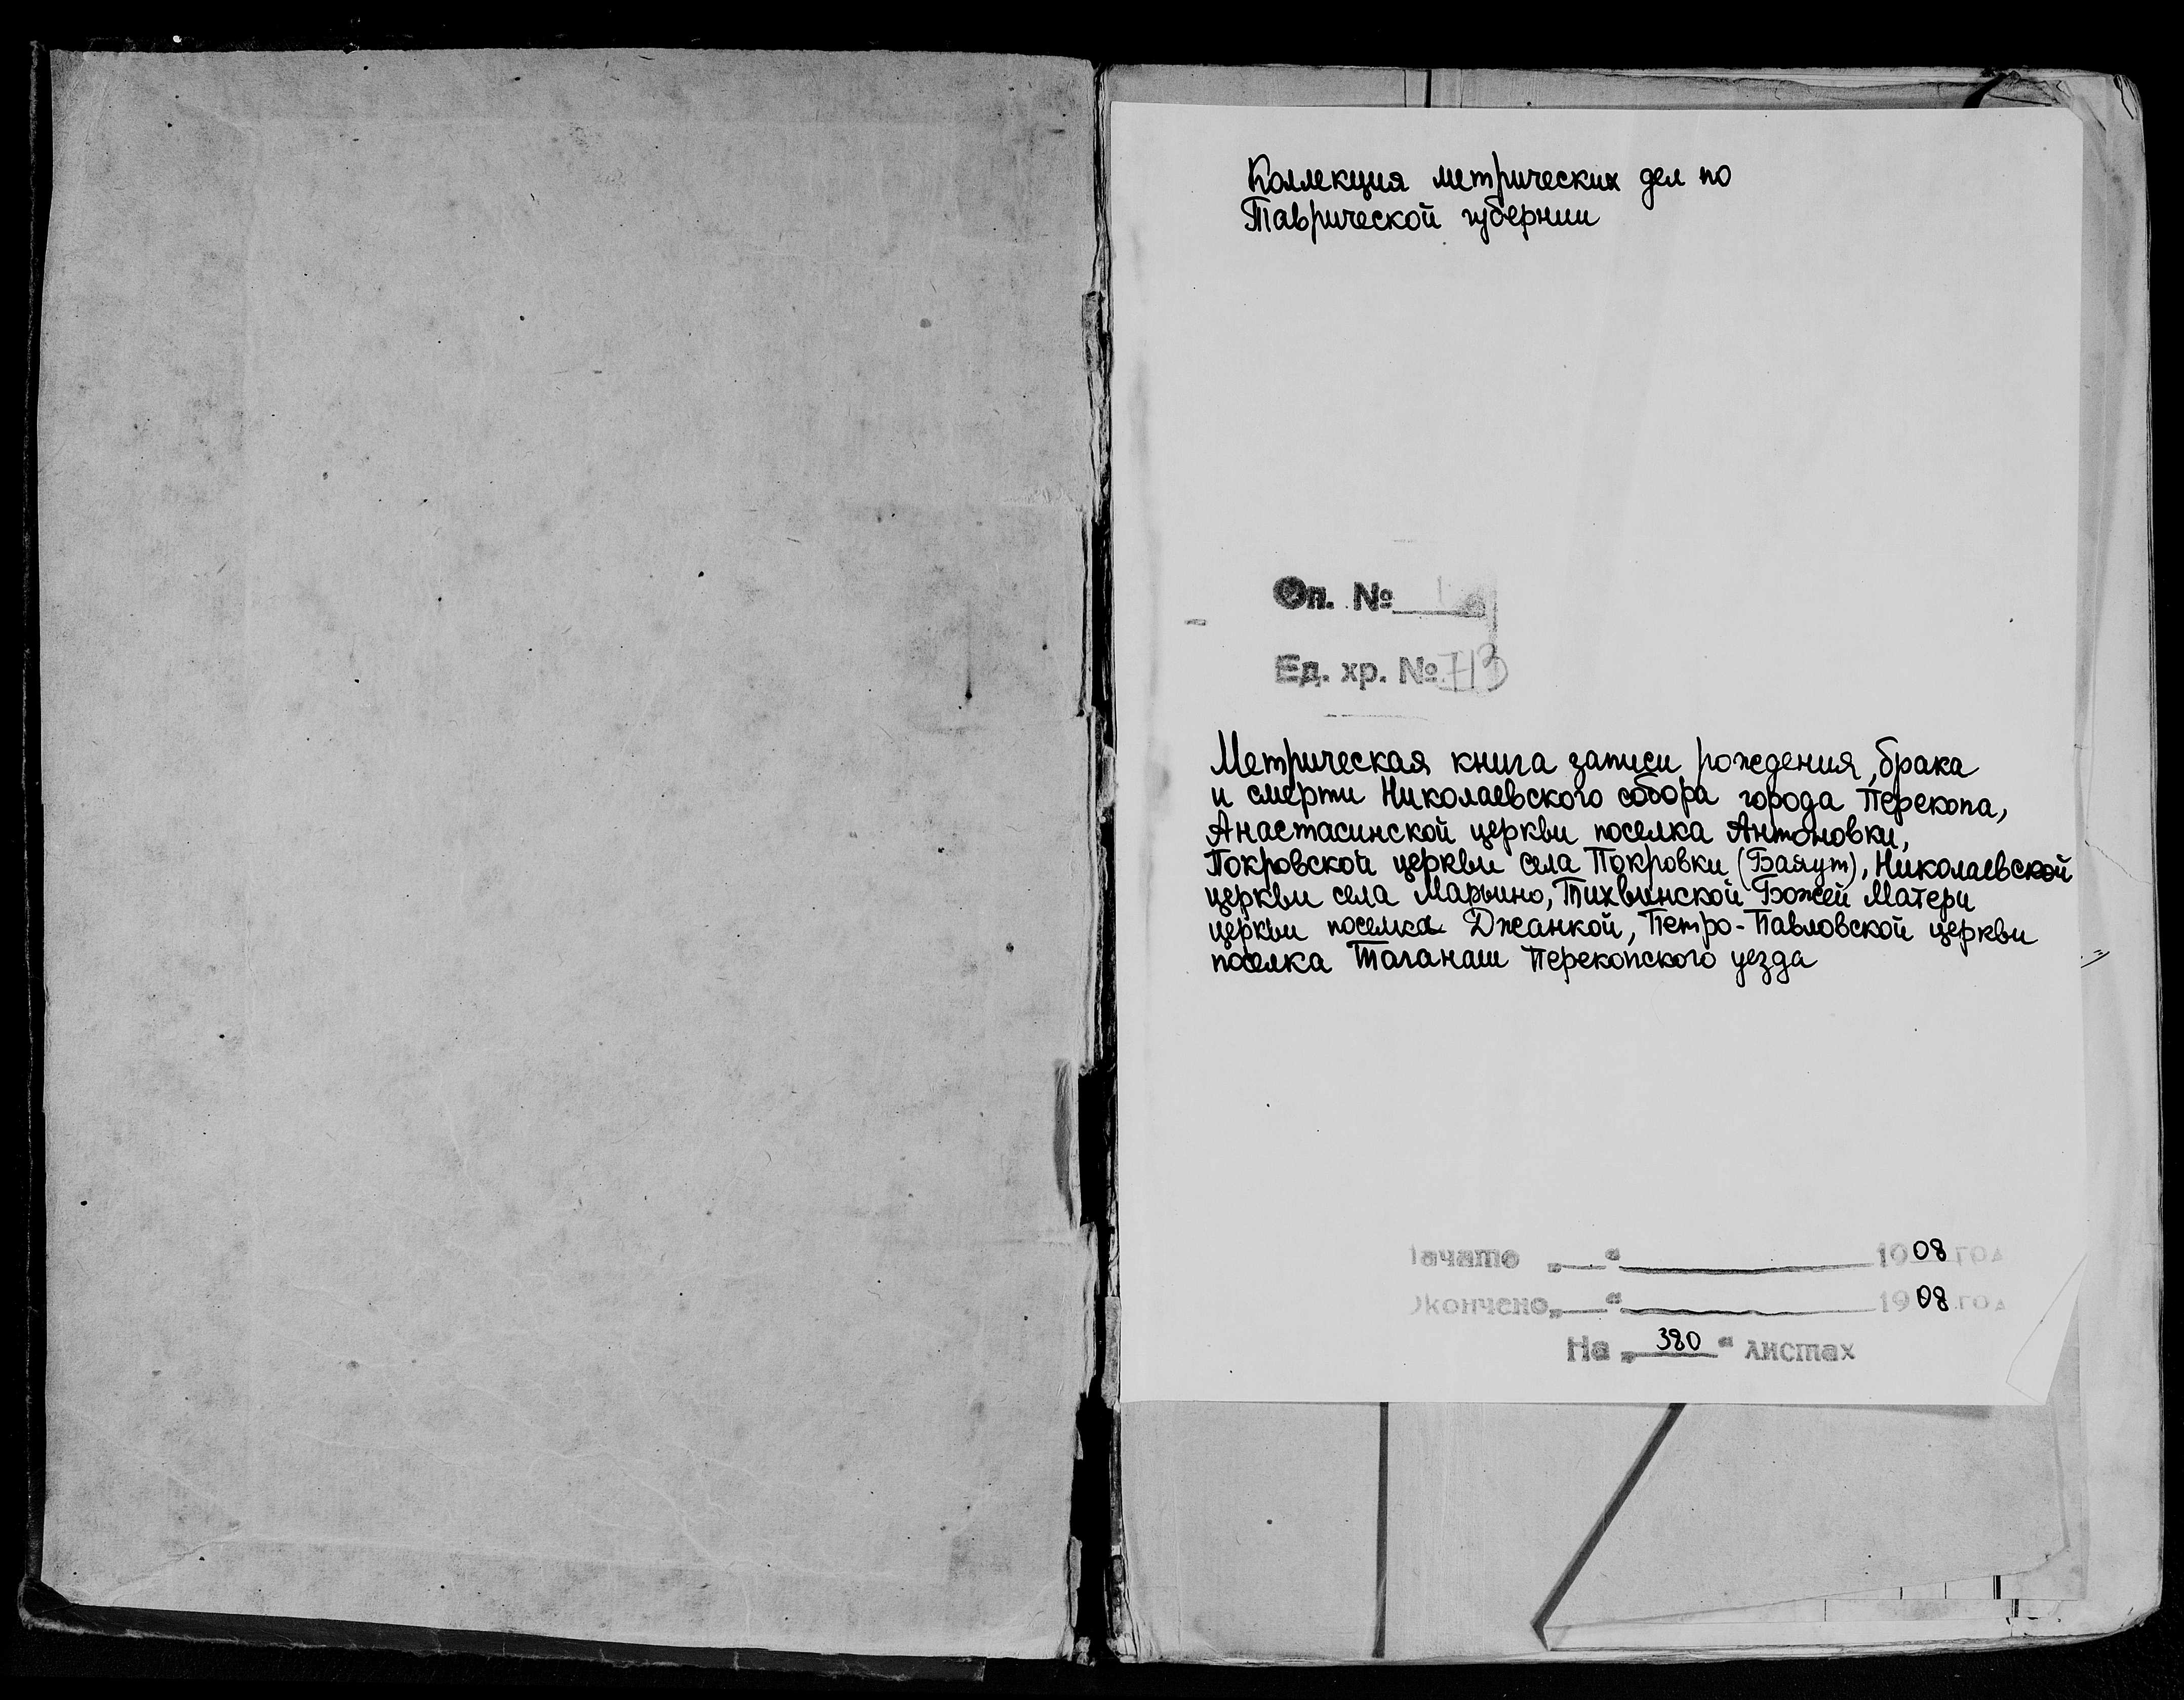 Коллекция метрических дел по
Таврической губернии
Оп. №
Ед. хр. № 713
Метрическая книга записи рождения, брака
и смерти Николаевского собора города Перекопа,
Анастасинской церкви поселка Антоновки,
Покровской церкви села Покровки (Баяут), Николаевской
церкви села Марьино, Тихвинской Божей Матери
церкви поселка Джанкой, Петро-Павловской церкви
поселка Таганаш Перекопского уезда
Начато „ “ 1908 год
Окончено „ “ 1908 год
На „ 380 “ листах